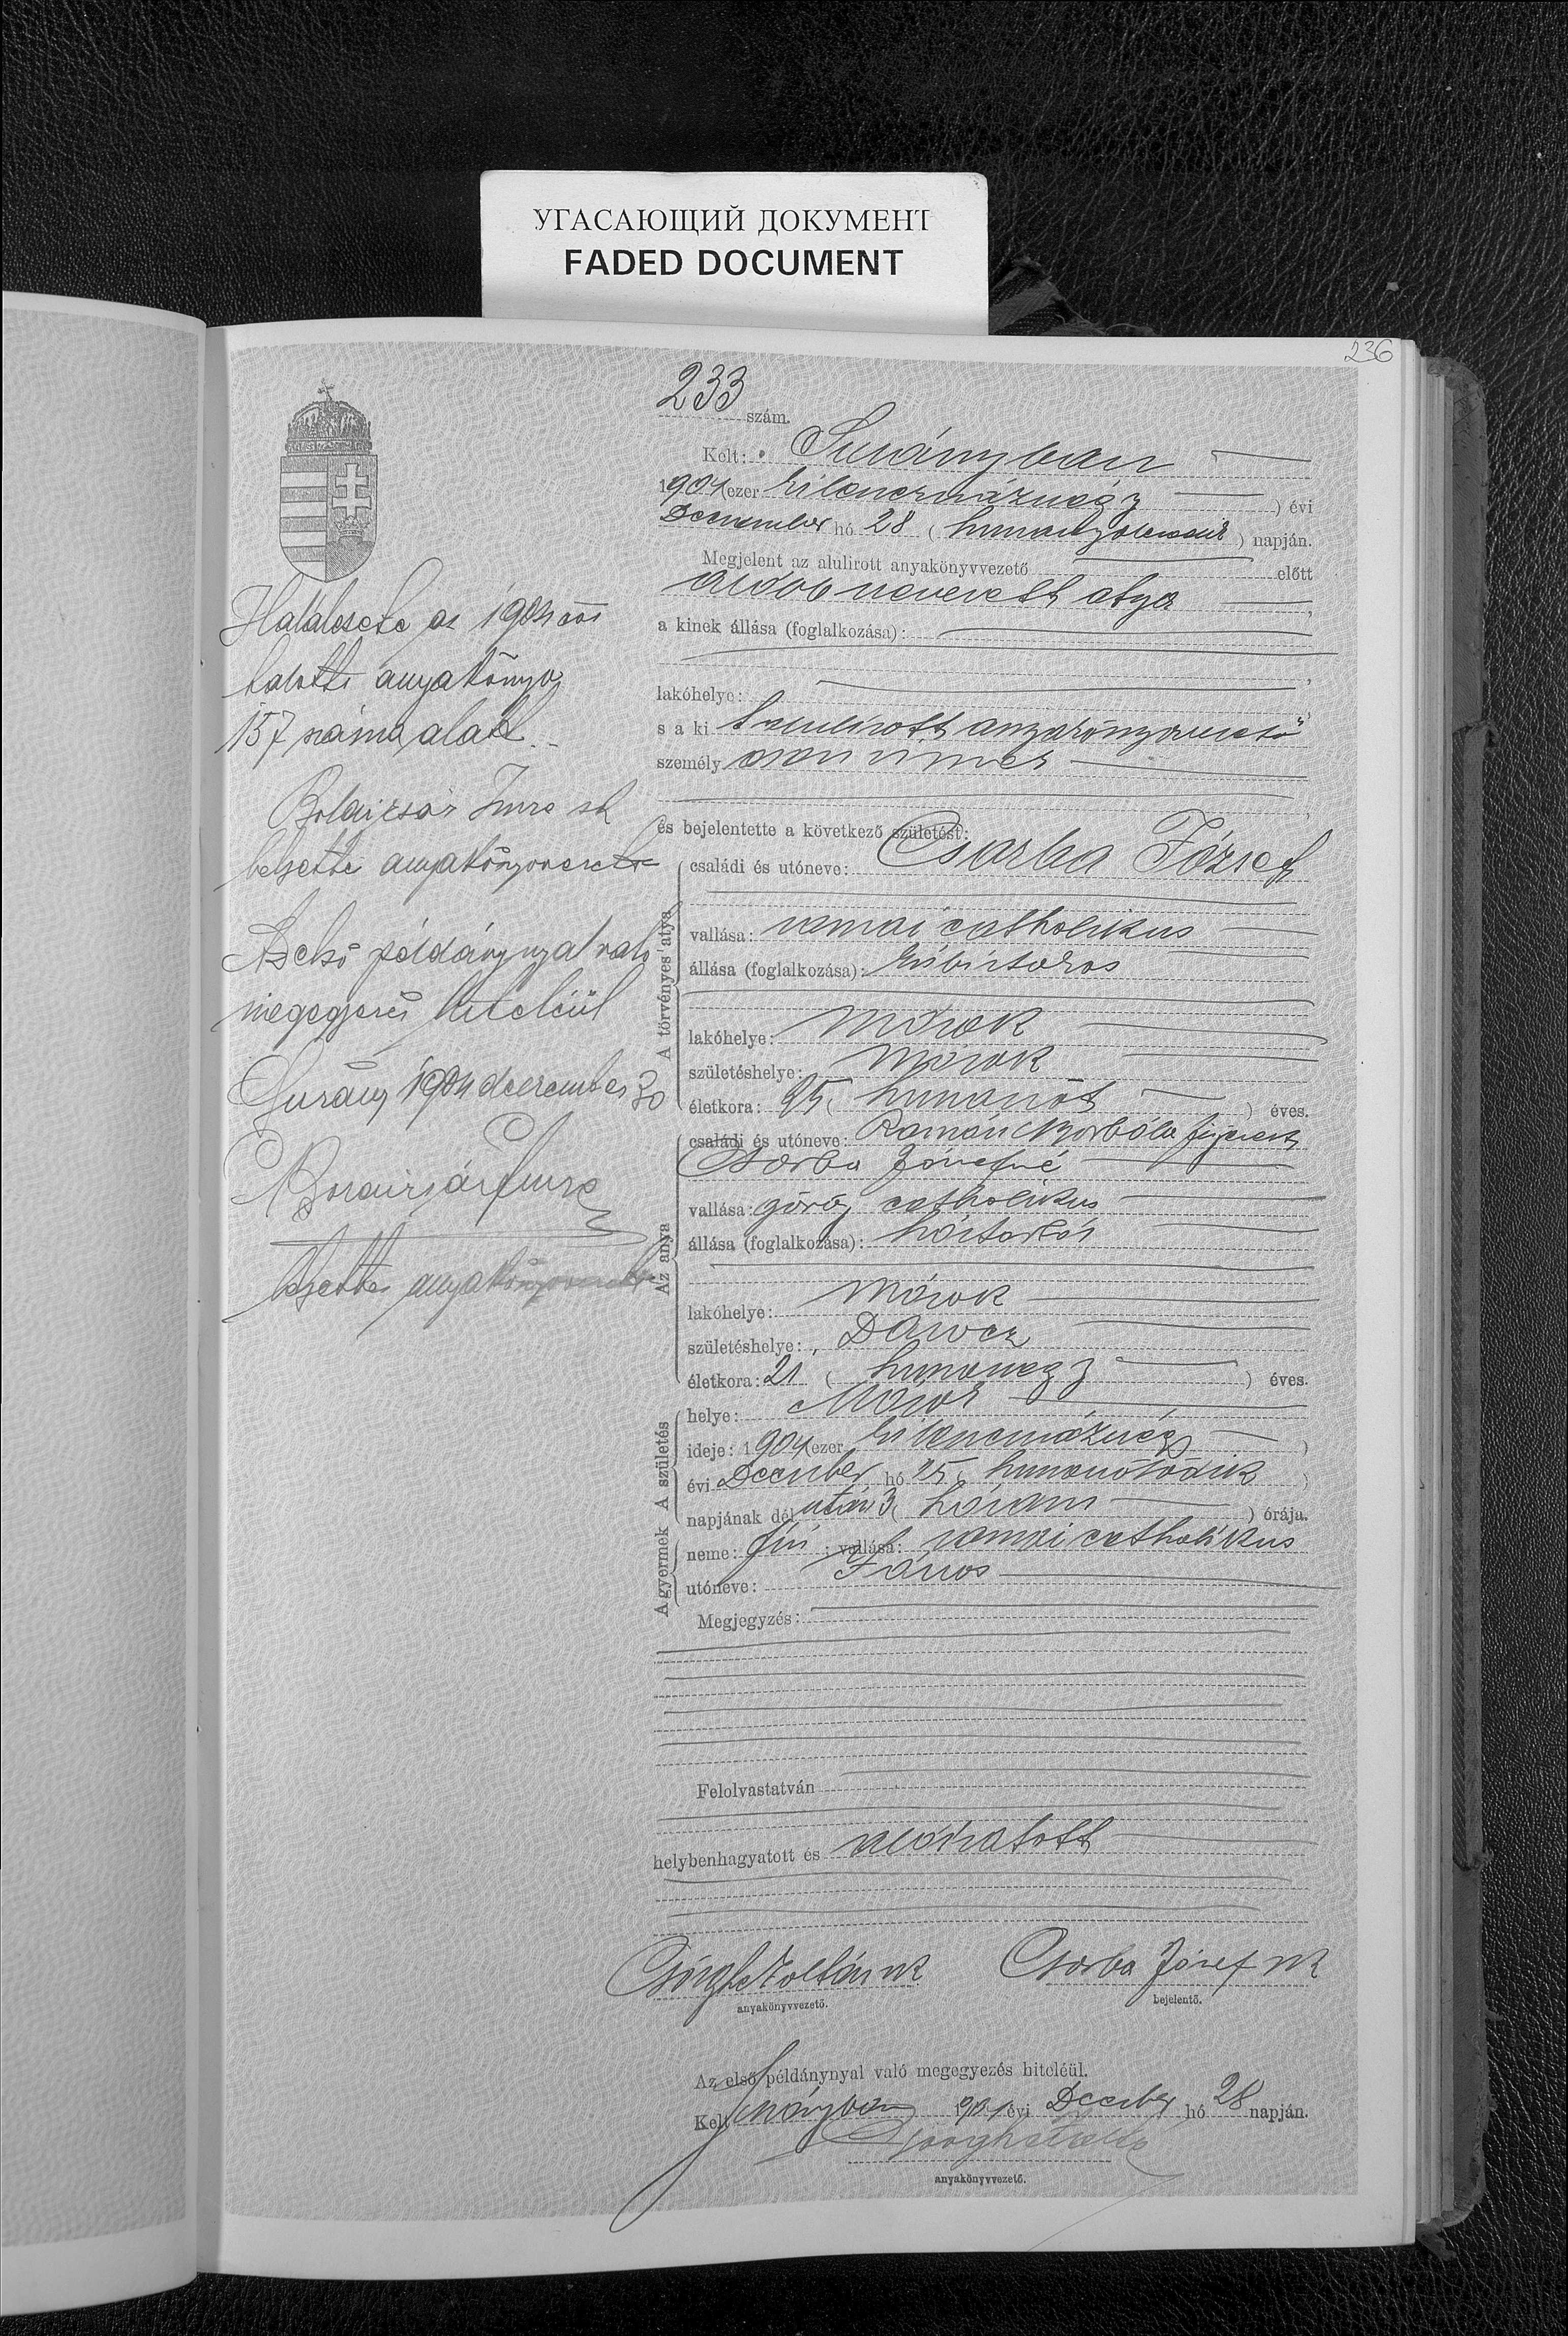 УГАСАЮЩИЙ ДОКУМЕНТ
FADED DOCUMENT
236
233 szám.
Kelt: Surányban
1904 (ezer kilenczszáznégy) évi
December hó 28 (huszonnyolczadik) napján.
Megjelent az alulirott anyakönyvvezető előtt
alább nevezett atya,
a kinek állása (foglalkozása):
lakóhelye:
s a ki alulírott anyakönyvvezető
személy
és bejelentette a következő születést:
A törvényes atya
családi és utóneve: Csorba József
vallása: romai catholikus
állása (foglalkozása): kúbirtokos
lakóhelye: Mórok
születéshelye: Mórok
életkora: 25 (huszonöt) éves.
Az anya
családi és utóneve: Román Borbála férjezett
Csorba Józsefné
vallása: görög catholikus
állása (foglalkozása): háztartás
lakóhelye: Mórok
születéshelye: Darócz
életkora: 21 (huszonegy) éves.
A születés
helye: Mórok
ideje: 1904 (ezer kilenczszáznégy)
évi December hó 25 (huszonötödik)
napjának délután 3 (három) órája.
A gyermek
neme: fiú; vallása: romai catholikus
utóneve: János
Megjegyzés:
Felolvastatván
helybenhagyatott és aláíratott
Zoltán sk
anyakönyvvezető.
Csorba József sk
bejelentő.
Az első példánynyal való megegyezés hiteléül.
Kelt Surányban 1904 évi December hó 28 napján.
anyakönyvvezető.
Halálesete az 1904 évi
halotti anyakönyv
157 száma alatt
Imre sk
helyettes anyakönyvvezető
Az első példánynyal való
megegyezés hiteléül
Surány 1904 december 30
Imre
helyettes anyakönyvvezető